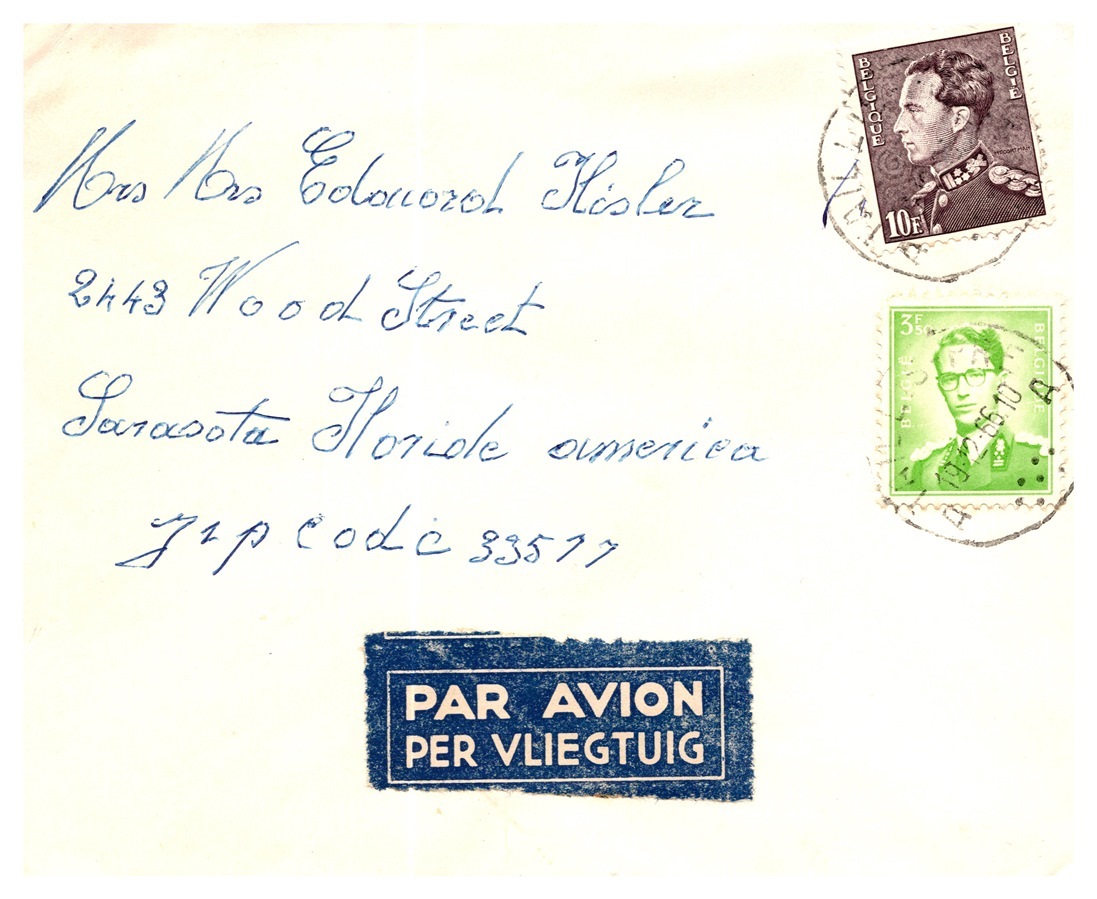 BELGIQUE BELGIË
10F
Mrs Mrs Edouord Hisler
2443 Wood Street
3F50
BELGIË BELGIQUE
A 19-12-66.10 A
Sarasota Floride america
zip codc 33577
PAR AVION
PER VLIEGTUIG